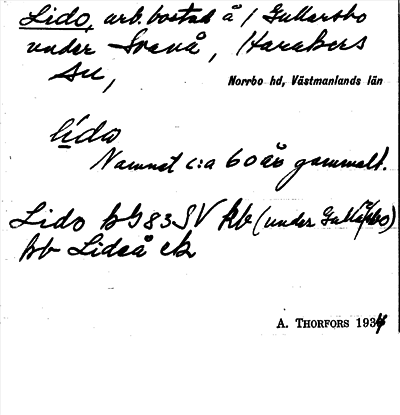 Lido, arb.bostad å / Gullersbo
under Svanå, Harakers
sn,
Norrbo hd, Västmanlands län
lído
Namnet c:a 60 år gammalt.
Lido bG 83 SV kb (under Gullersbo)
hb Lidså ek
A. THORFORS 1934